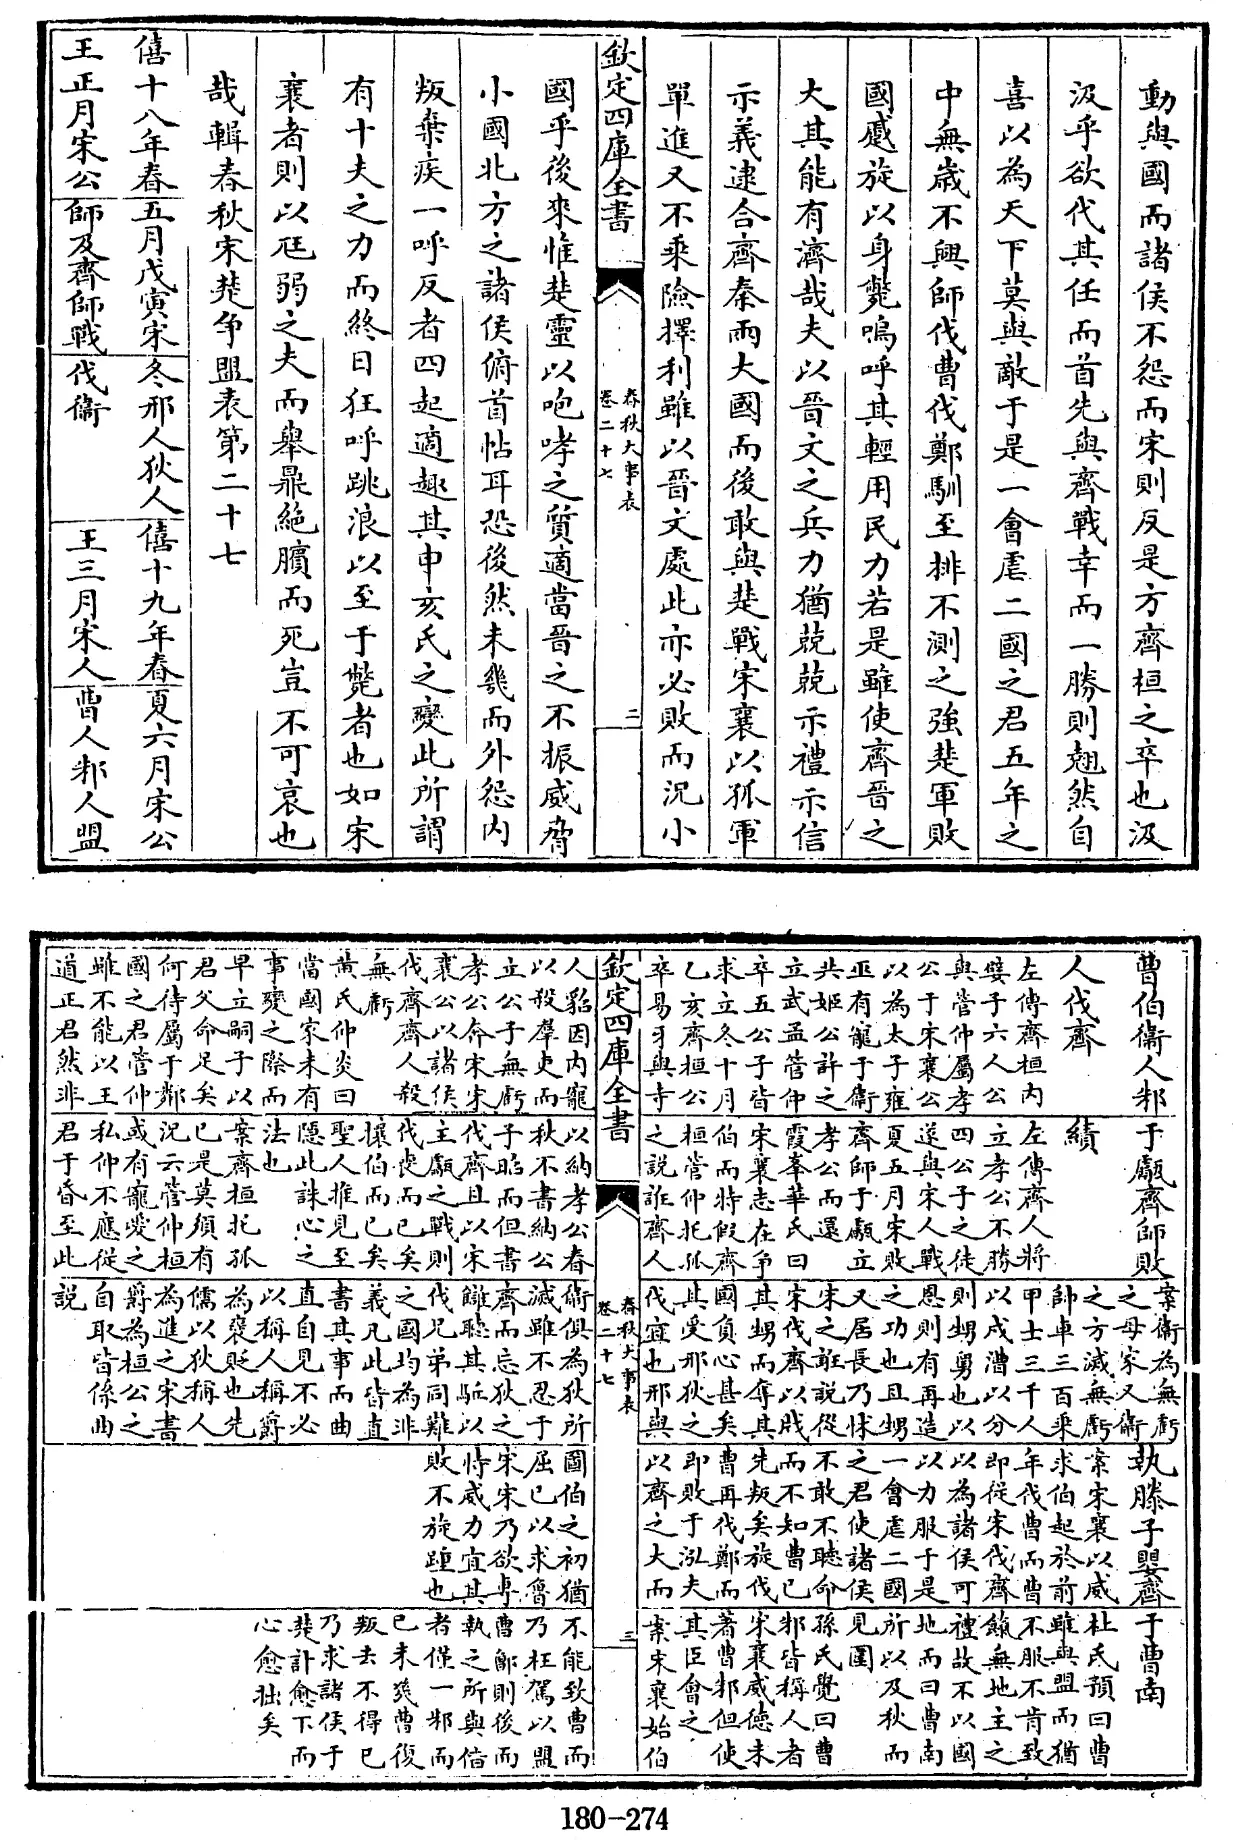 動與國而諸侯不怨而宋則反是方齊桓之卒也汲
汲乎欲代其任而首先與齊戰幸而一勝則翹然自
喜以為天下莫與敵于是一會虐二國之君五年之
中無歲不興師伐曹伐鄭馴至排不測之強楚軍敗
國蹙旋以身斃嗚呼其輕用民力若是雖使齊晉之
大其能有濟哉夫以晉文之兵力猶兢兢示禮示信
示義逮合齊秦兩大國而後敢與楚戰宋襄以孤軍
單進又不乘險擇利雖以晉文處此亦必敗而況小
欽定四庫全書
春秋大事表
卷二十七
二
國乎後來惟楚靈以咆哮之質適當晉之不振威脅
小國北方之諸侯俯首帖耳恐後然未幾而外怨内
叛棄疾一呼反者四起適趣其申亥氏之變此所謂
有十夫之力而終日狂呼跳浪以至于斃者也如宋
襄者則以尫弱之夫而舉鼎絶臏而死豈不可哀也
哉輯春秋宋楚争盟表第二十七
僖十八年春
王正月宋公
五月戊寅宋
師及齊師戰
冬邢人狄人
伐衛
僖十九年春
王三月宋人
夏六月宋公
曹人邾人盟
曹伯衛人邾
人伐齊
左傳齊桓内
嬖子六人公
與管仲屬孝
公于宋襄公
以為太子雍
巫有寵于衛
共姬公許之
立武孟管仲
卒五公子皆
求立冬十月
乙亥齊桓公
卒易牙與寺
于甗齊師敗
績
左傳齊人將
立孝公不勝
四公子之徒
遂與宋人戰
夏五月宋敗
齊師于甗立
孝公而還
霞峯華氏曰
宋襄志在争
伯而特假齊
桓管仲托孤
之説誑齊人
案衛為無虧
之母家又衛
之方滅無虧
帥車三百乘
甲士三千人
以戍漕以分
則甥舅也以
恩則有再造
之功也且甥
又居長乃怵
宋之誑説從
宋伐齊以戕
其甥而奪其
國負心甚矣
其受邢狄之
伐宜也邢與
執滕子嬰齊
案宋襄以威
求伯起於前
年伐曹而曹
即從宋伐齊
以為諸侯可
以力服于是
一會虐二國
之君使諸侯
不敢不聴命
而不知曹已
先叛矣旋伐
曹再伐鄭而
即敗于泓夫
以齊之大而
于曹南
杜氏預曰曹
雖與盟而猶
不服不肯致
餼無地主之
禮故不以國
地而曰曹南
所以及秋而
見圍
孫氏覺曰曹
邾皆稱人者
宋襄威徳未
著曹邾但使
其臣會之
案宋襄始伯
欽定四庫全書
春秋大事表
卷二十七
三
人貂因内寵
以殺羣吏而
立公子無虧
孝公奔宋宋
襄公以諸侯
伐齊齊人殺
無虧
黄氏仲炎曰
當國家未有
事變之際而
早立嗣子以
君父命足矣
何待屬于鄰
國之君管仲
雖不能以王
道正君然非
以納孝公春
秋不書納公
子昭而但書
伐齊且以宋
主甗之戰則
伐喪而已矣
攘伯而已矣
聖人推見至
隱此誅心之
法也
案齊桓托孤
已是莫須有
況云管仲桓
或有寵愛之
私仲不應從
君于昏至此
衛俱為狄所
滅雖不忍于
齊而忘狄之
讎聴其駈以
伐兄弟同難
之國均為非
義凡此皆直
書其事而曲
直自見不必
以稱人稱爵
為褒貶也先
儒以狄稱人
為進之宋書
爵為桓公之
自取皆係曲
説
國伯之初猶
屈已以求魯
宋宋乃欲専
恃威力宜其
敗不旋踵也
不能致曹而
乃枉駕以盟
曹鄫則後而
執之所與偕
者僅一邾而
已未幾曹復
叛去不得已
乃求諸侯于
楚計愈下而
心愈拙矣
180-274